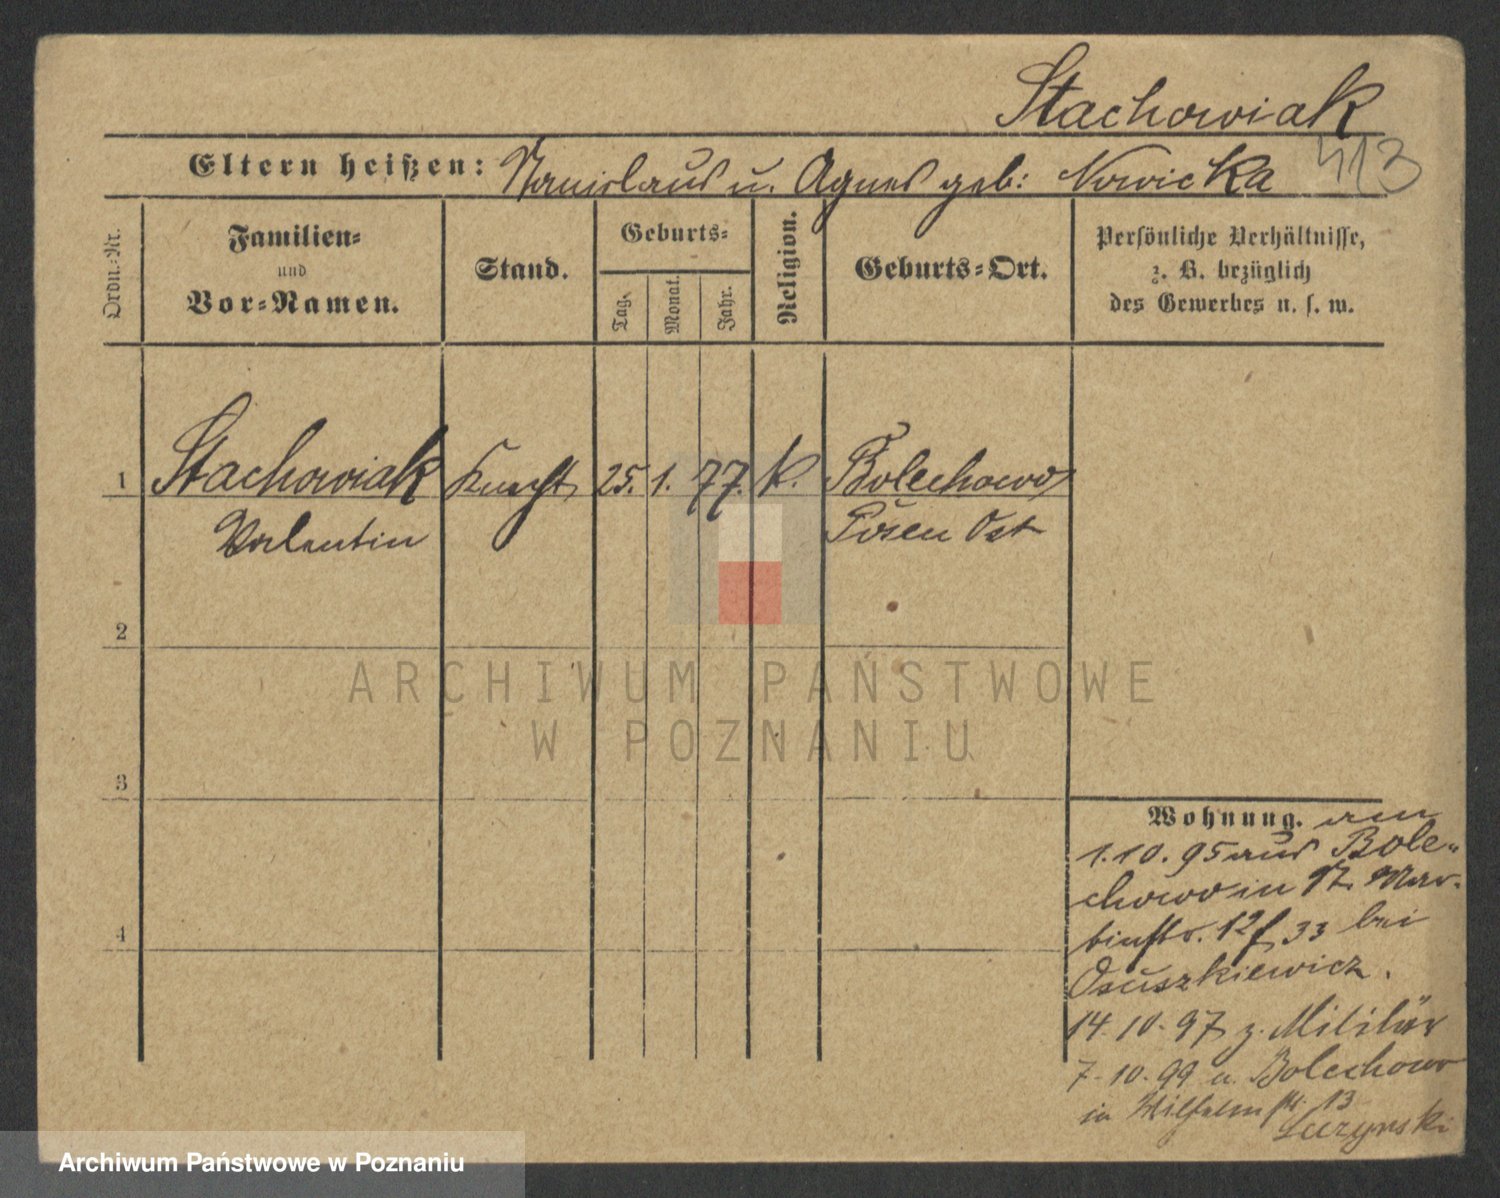 Stachowiak
Eltern heißen: Stanislaus u. Agnes geb: Nowicka 413
Ordn.-Nr.
Familien-
und
Vor-Namen.
Stand.
Geburts-
Tag.
Monat.
Jahr.
Religion.
Geburts-Ort.
Persönliche Verhältnisse,
z. B. bezüglich
des Gewerbes u. s. w.
1 Stachowiak Knecht 25. 1. 77. k. Bolechowo
Valentin Posen Ost
2
ARCHIWUM PAŃSTWOWE
W POZNANIU
3
Wohnung. am
1.10.95 aus Bole-
chowo in St. Mar-
tinstr. 12 33 bei
Osuszkiewicz.
4
14.10.97 z. Militär
7.10.99 a. Bolechowo
in Wilhelmstr. 13
Archiwum Państwowe w Poznaniu